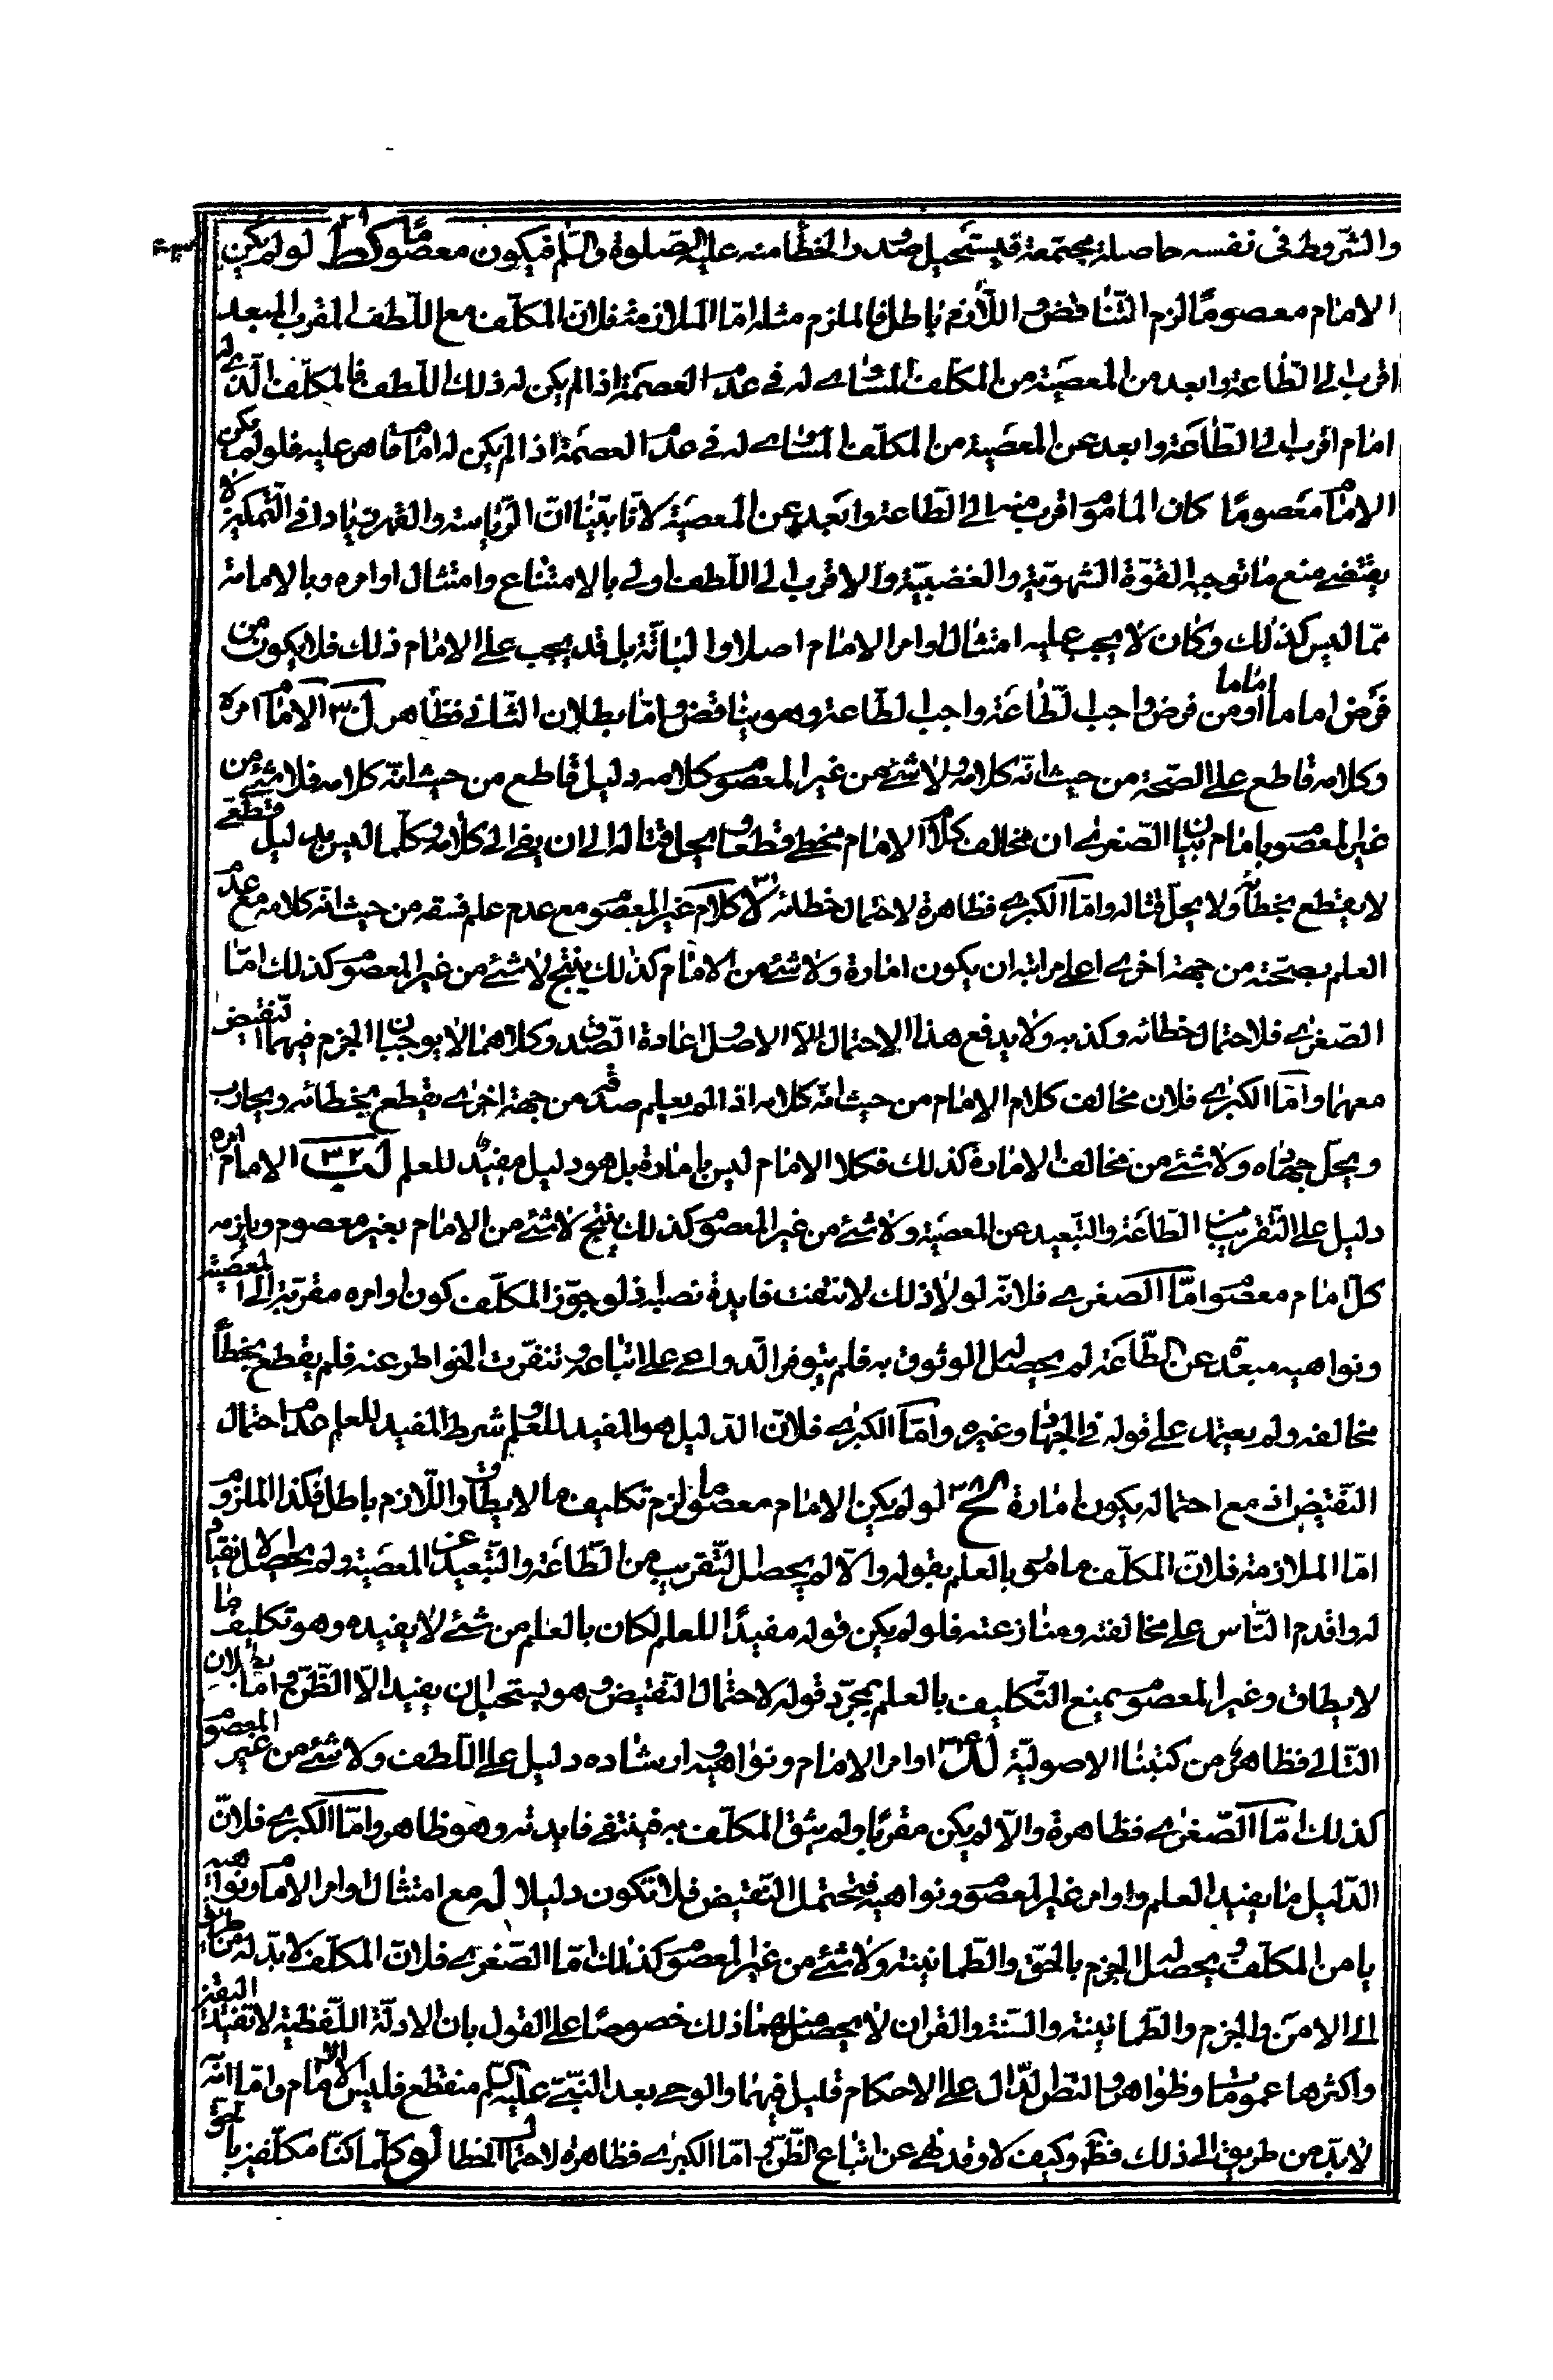 والشروط في نفسه حاصلة مجتمعة فيستحيل صدور الخطأ منه عليه الصلوة والسلم فيكون معصوما كط ٢٩ لو لم يكن
الامام معصومًا لزم التناقض واللازم باطل فالملزوم مثله امّا الملازمة فلانّ المكلّف مع اللّطف المقرب المبعد
اقرب الى الطّاعة وابعد من المعصية من المكلف المساوي له في عدم العصمة اذا لم يكن له ذلك اللطف فالمكلّف الّذي له
امام اقرب الى الطّاعة وابعد عن المعصية من المكلّف المساوي له في عدم العصمة اذا لم يكن له امام قاهر عليه فلو لم يكن
الامام معصومًا كان الماموم اقرب منه الى الطّاعة وابعد عن المعصية لانّا بيّنا انّ الرّياسة والقهر زيادة في التمكين لا
يقتضي منع ما توجبه القوّة الشهويّة والغضبيّة والاقرب الى اللّطف اولى بالامتناع وامتثال اوامره وبالامامة
ممّا ليس كذلك وكان لا يجب عليه امتثال اوامر الامام اصلا والبتّة بل قد يجب على الامام ذلك فلا يكون من
فرض اماما اماما ومن فرض واجب الطّاعة واجب الطّاعة وهو يناقض وامّا بطلان الثاني فظاهر ل ٣٠ الامام امره
وكلامه قاطع على الصّحة من حيث انّه كلامه ولا شيء من غير المعصوم كلامه دليل قاطع من حيث انّه كلامه فلا شيء من
غير المعصوم بامام بيان الصّغرى ان مخالف كلام الامام مخطئ قطعا ويحل قتاله الى ان يفئ الى كلامه وكلّما ليس بدليل قطعي
لا يقطع بخطأه ولا يحلّ قتاله وامّا الكبرى فظاهرة لاحتمال خطائه لا ٣١ كلام غير المعصوم مع عدم علم فسقه من حيث انّه كلامه مع عدم
العلم بصحّته من جهة اخرى اعلى مراتبه ان يكون امارة ولا شيء من الامام كذلك ينتج لا شيء من غير المعصوم كذلك امّا
الصّغرى فلاحتمال خطائه وكذبه ولا يدفع هذا الاحتمال الّا الاصل وعادة الصّدق وكلاهما لا يوجبان الجزم فيهما النقيض
معهما وامّا الكبرى فلان مخالف كلام الامام من حيث انّه كلامه اذا لم يعلم صدقه من جهة اخرى يقطع بخطائه ويحارب
ويحلّ جهاده ولا شيء من مخالف الامارة كذلك فكلام الامام ليس بامارة بل هو دليل مفيد للعلم لب ٣٢ الامام امره
دليل على التّقريب من الطّاعة والتّبعيد عن المعصية ولا شيء من غير المعصوم كذلك ينتج لا شيء من الامام بغير معصوم ويلزمه
كلّ امام معصوم امّا الصغرى فلانّه لو لا ذلك لانتفت فايدة نصبه اذ لو جوّز المكلّف كون اوامره مقرّبة الى المعصية
ونواهيه مبعّدة عن الطّاعة لم يحصل له الوثوق به فلم يتوفر الّدواعي على اتباعه وتنفّرت الخواطر عنه فلم يقطع بخطأ
مخالفه ولم يعتمد على قوله في الجهاد وغيره وامّا الكبرى فلانّ الدّليل هو المفيد للعلم وشرط المفيد للعلم عدم احتمال
النّقيض اذ مع احتماله يكون امارة لج ٣٣ لو لم يكن الامام معصوما لزم تكليف ما لا يطاق واللّازم باطل فكذا الملزوم
امّا الملازمة فلانّ المكلّف مامور بالعلم بقوله والّا لم يحصل التّقريب من الطّاعة والتّبعيد عن المعصية ولم يحصل الانقياد
له واقدم النّاس على مخالفته ومنازعته فلو لم يكن قوله مفيدًا للعلم لكان بالعلم من شيء لا يفيده وهو تكليف ما
لا يطاق وغير المعصوم يمنع التّكليف بالعلم بمجرّد قوله لاحتمال النّقيض وهو يستحيل ان يفيد الّا الظّنّ وامّا بطلان
التّالي فظاهر من كتبنا الاصوليّة لد ٣٤ اوامر الامام ونواهيه وارشاده دليل على اللّطف ولا شيء من غير المعصوم
كذلك امّا الصّغرى فظاهرة والّا لم يكن مقربا ولم يثق المكلّف به فينتفي فايدته وهو ظاهر وامّا الكبرى فلانّ
الدّليل ما يفيد العلم واوامر غير المعصوم ونواهيه فيحتمل النّقيض فلا تكون دليلا له مع امتثال اوامر الامام ونواهيه
يامن المكلّف ويحصل له الجزم بالحقّ والطّمانينة ولا شيء من غير المعصوم كذلك امّا الصّغرى فلانّ المكلّف لا بدّ له من طريق
الى الامن والجزم والطّمانينة والسّنة والقران لا يحصل منهما ذلك خصوصًا على القول بان الادلّة اللّفظية لا تفيد اليقين
واكثرها عمومات وظواهر والنّظر الدّال على الاحكام قليل فيهما والوحي بعد النّبيّ عليه السلم منقطع فليس الّا الامام وامّا انّه
لا بدّ من طريق الى ذلك فظ وكيف لا وقد نهى عن اتباع الظّنّ وامّا الكبرى فظاهرة لاحتمال الخطا لو كلّما كنّا مكلّفين باتباع